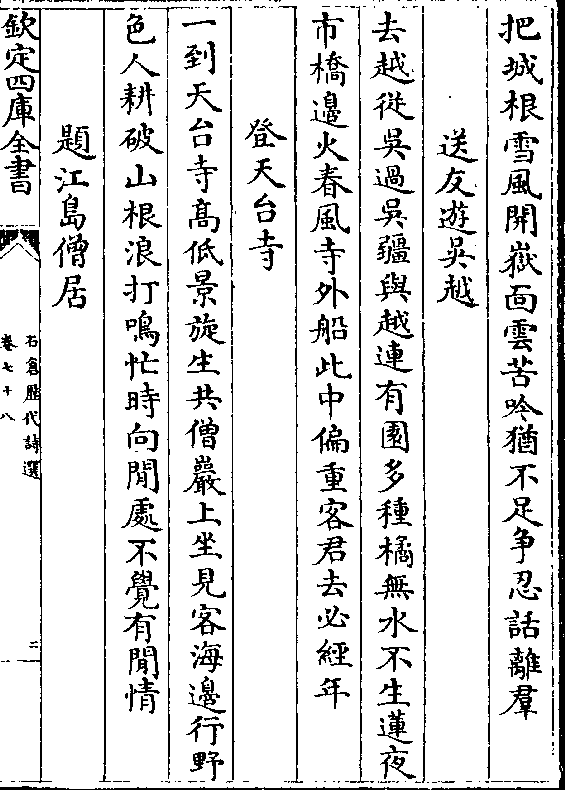 把城根雪風開嶽面雲苦吟猶不足争忍話離羣
送友遊吳越
去越從吳過吳疆與越連有園多種橘無水不生蓮夜
市橋邊火春風寺外船此中偏重客君去必經年
登天台寺
一到天台寺髙低景旋生共僧巖上坐見客海邊行野
色人耕破山根浪打鳴忙時向閒處不覺有閒情
題江島僧居
欽定四庫全書
石倉歴代詩選
卷七十八
二